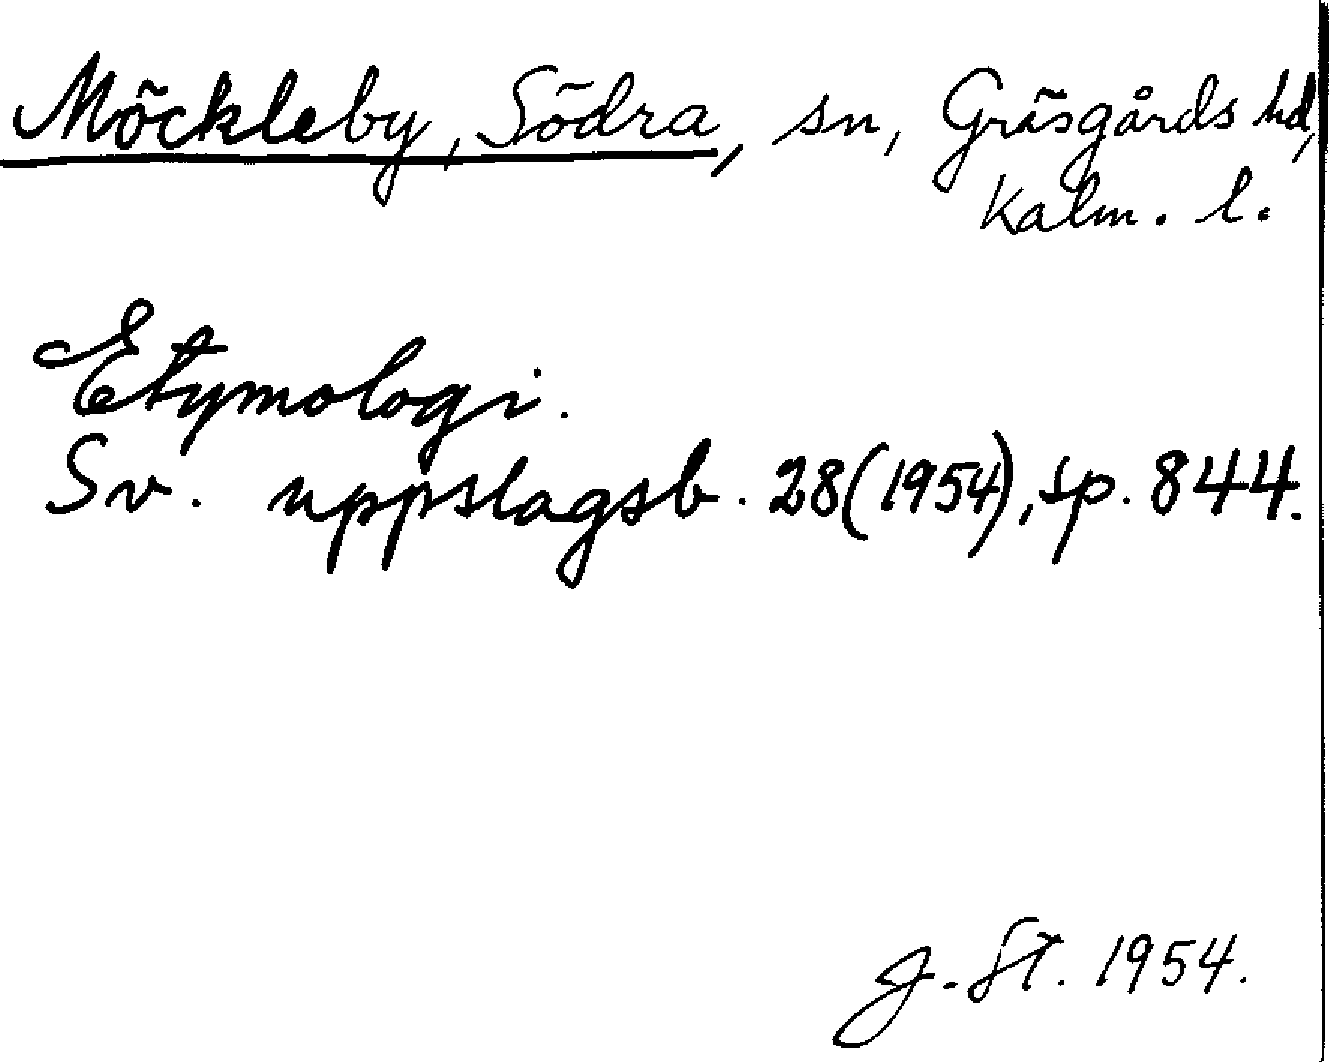 Möckleby, Södra, sn, Gräsgårds hd,
Kalm. l.
Etymologi.
Sv. uppslagsb. 28(1954), sp. 844.
J. St. 1954.